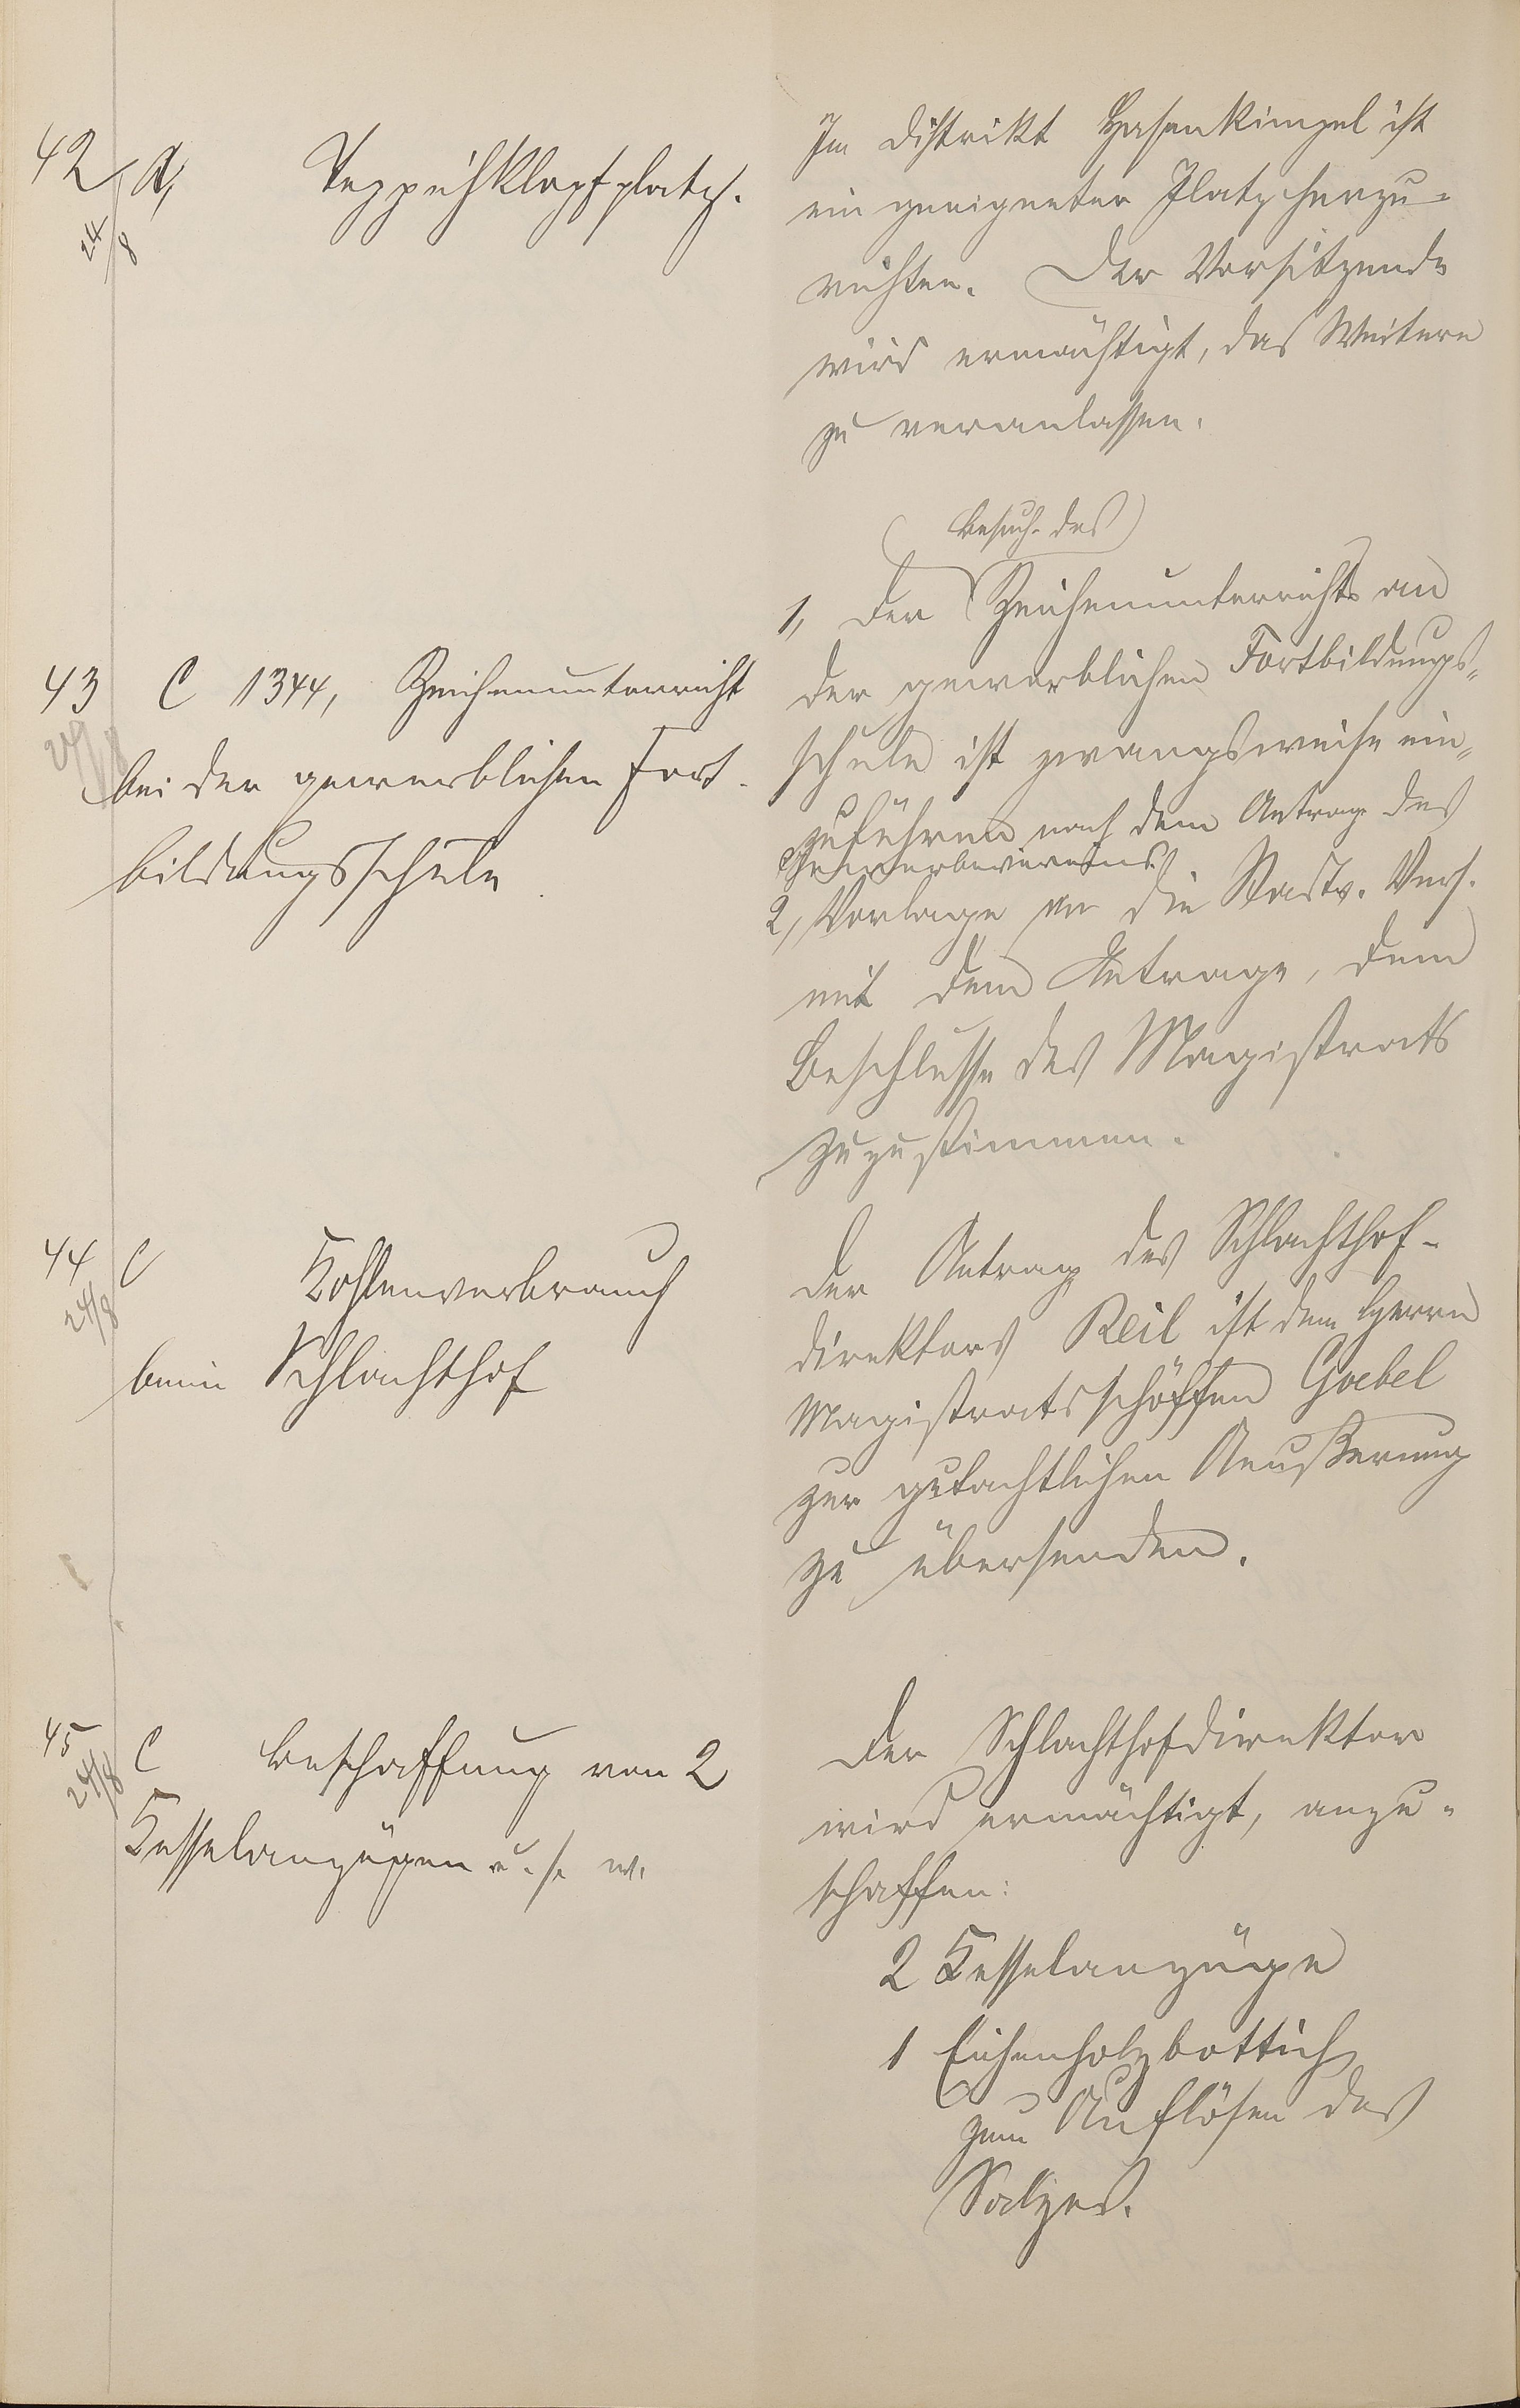 42 A, Teppichklopfplatz.
24/8
Im Distrikt Hasenkimpel ist
ein geeigneter Platz herzu-
richten. Der Vorsitzende
wird ermächtigt, das Weitere
zu veranlassen.
43 C 1344, Zeichenunterricht
24/8
bei der gewerblichen Fort-
bildungsschule
Besuch des
1, Der Zeichenunterrichts an
der gewerblichen Fortbildungs-
schule ist zwangsweise ein-
zuführen nach dem Antrag des
Gewerbevereins.
2, Vorlage an die Stadtv. Vers.
mit dem Antrage, dem
Beschlusse des Magistrats
zuzustimmen.
44 C Kohlenverbrauch
24/8
beim Schlachthof
Der Antrag des Schlachthof-
direktors Reil ist dem Herrn
Magistratsschöffen Goebel
zur gutachtlichen Aeußerung
zu übersenden.
45 C Beschaffung von 2
24/8
Kesselanzügen u. s. w.
Der Schlachthofdirektor
wird ermächtigt, anzu-
schaffen:
2 Kesselanzüge
1 Eichenholzbottich
zum Auflösen des
Salzes.